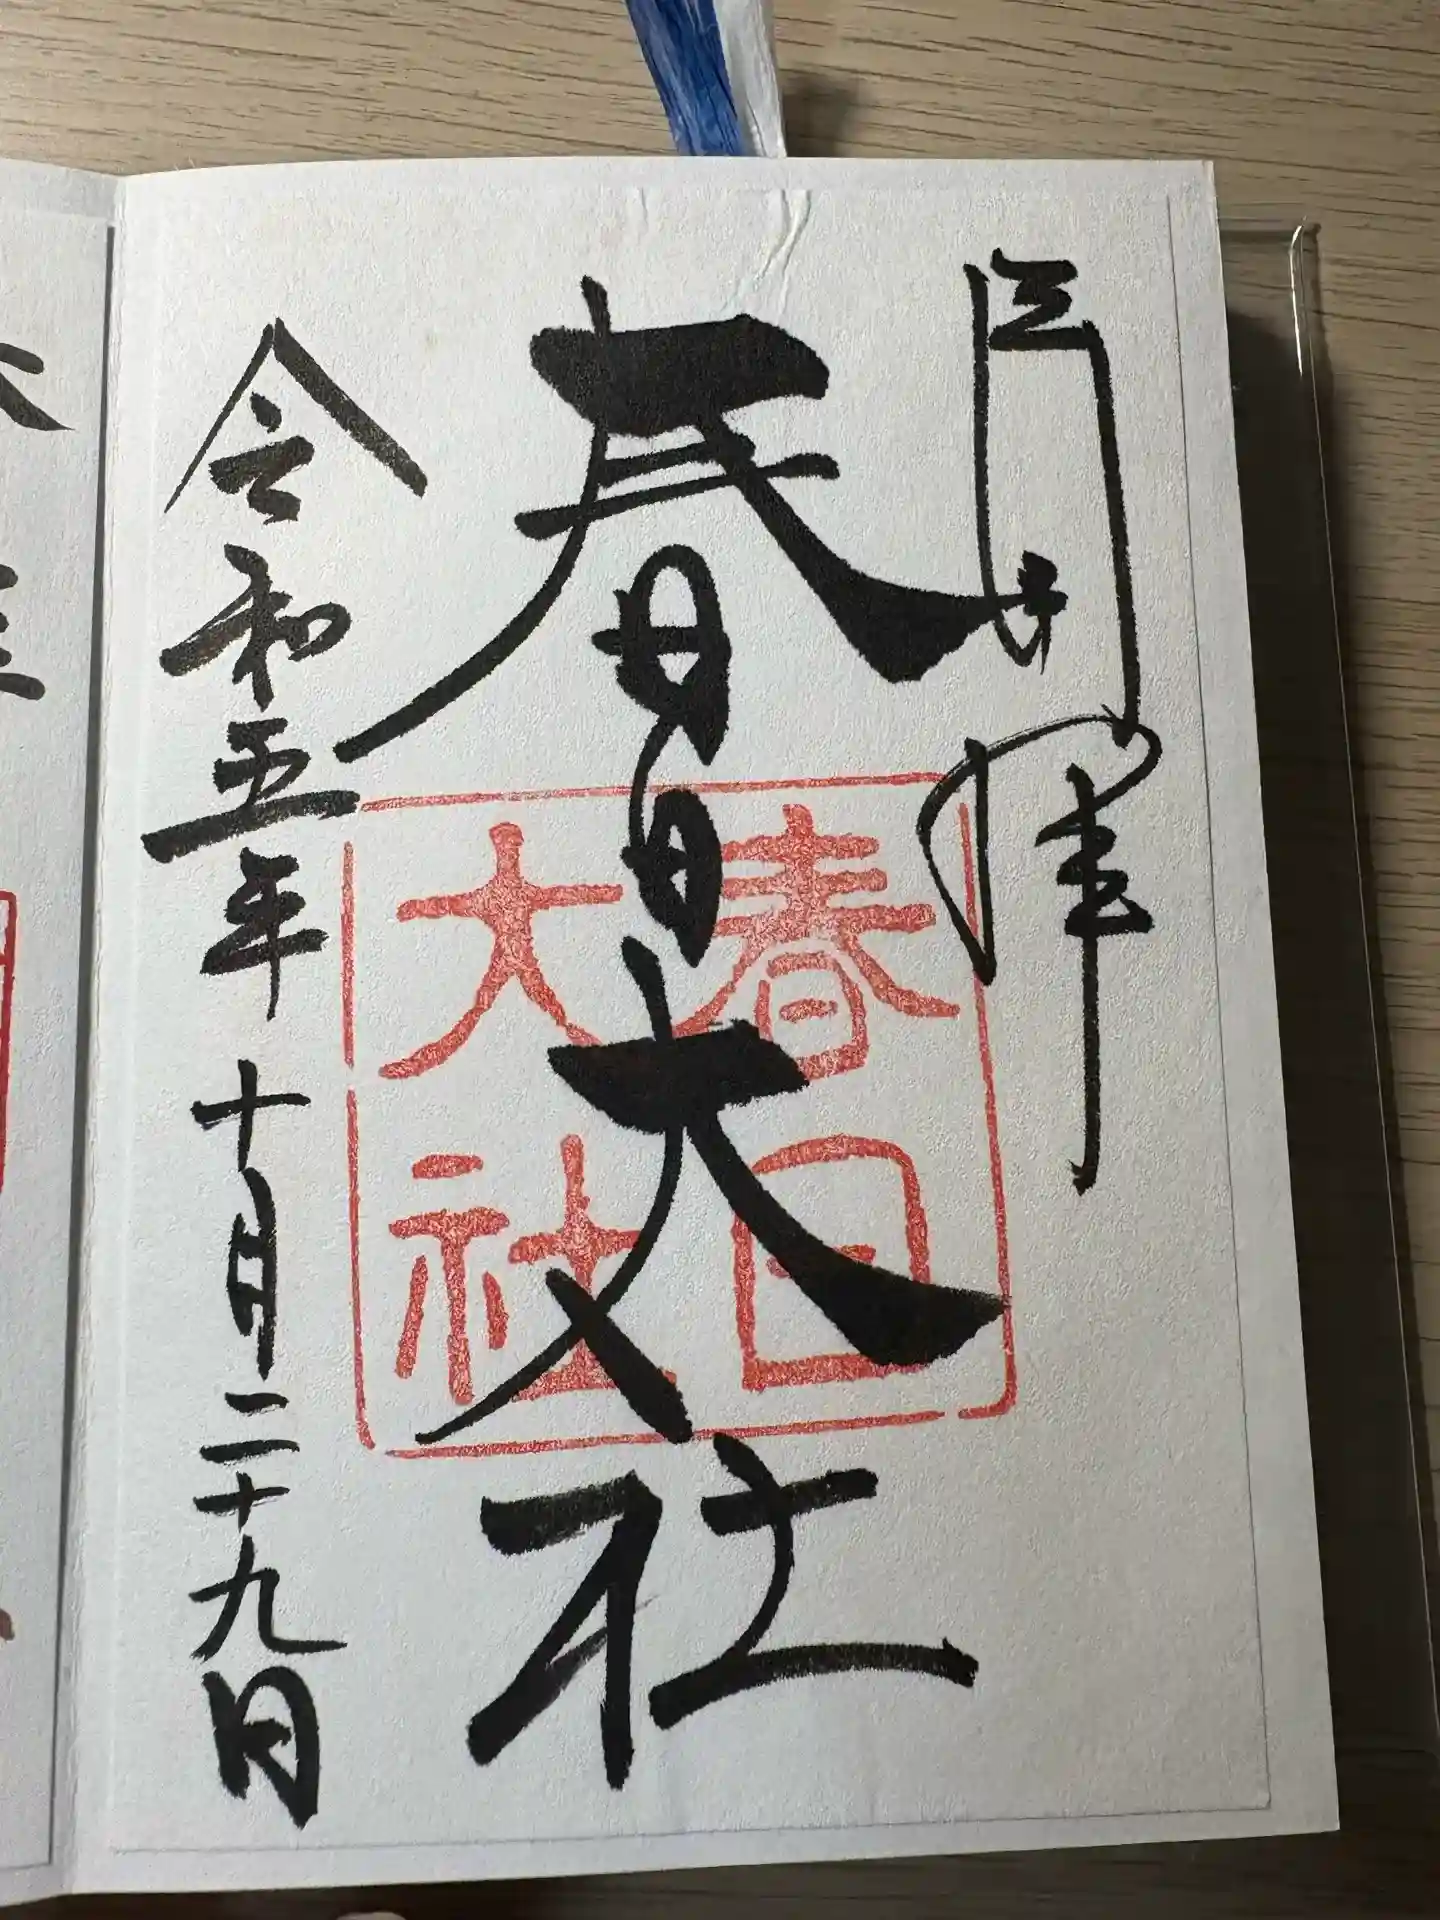 春日大社
春日
大社
令和五年十月二十九日